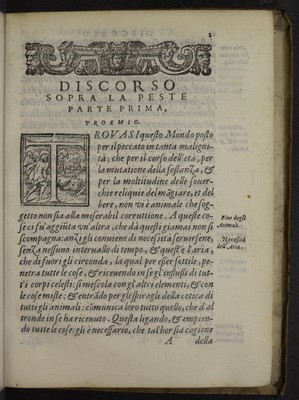 1
DISCORSO
SOPRA LA PESTE
PARTE PRIMA,
PROEMIO.
TROVASI questo Mondo posto
per il peccato in tanta maligni-
tà; che per il corso dell'età, per
la mutatione della sostanza, &
per la moltitudine delle souer-
chie reliquie del māgiare, et del
bere, non vi è animale che sog-
getto non sia alla miserabil corruttione. A queste co-
se ci fu aggiūta vn'altra, che da questi giamai non si
scompagna: anzi gli conuiene di necessità seruirsene,
senza nessuno interuallo di tempo, & questa è l'aria,
che di fuori gli circonda, la qual per esser sottile, pe-
netra tutte le cose, & riceuendo in se gl'influssi di tut-
t'i corpi celesti: si mescola con gl'altri elementi, & con
le cose miste: & entrādo per gli spiragli della cotica di
tutti gli animali: cōmunica loro tutto quello, che d'al
tronde in se ha riceuuto. Questa ligando, & empien-
do tutte le cose: gli è necessario, che tal hor sia cagione
Fine degli
Animali.
Necessità
dell'Aria.
A della